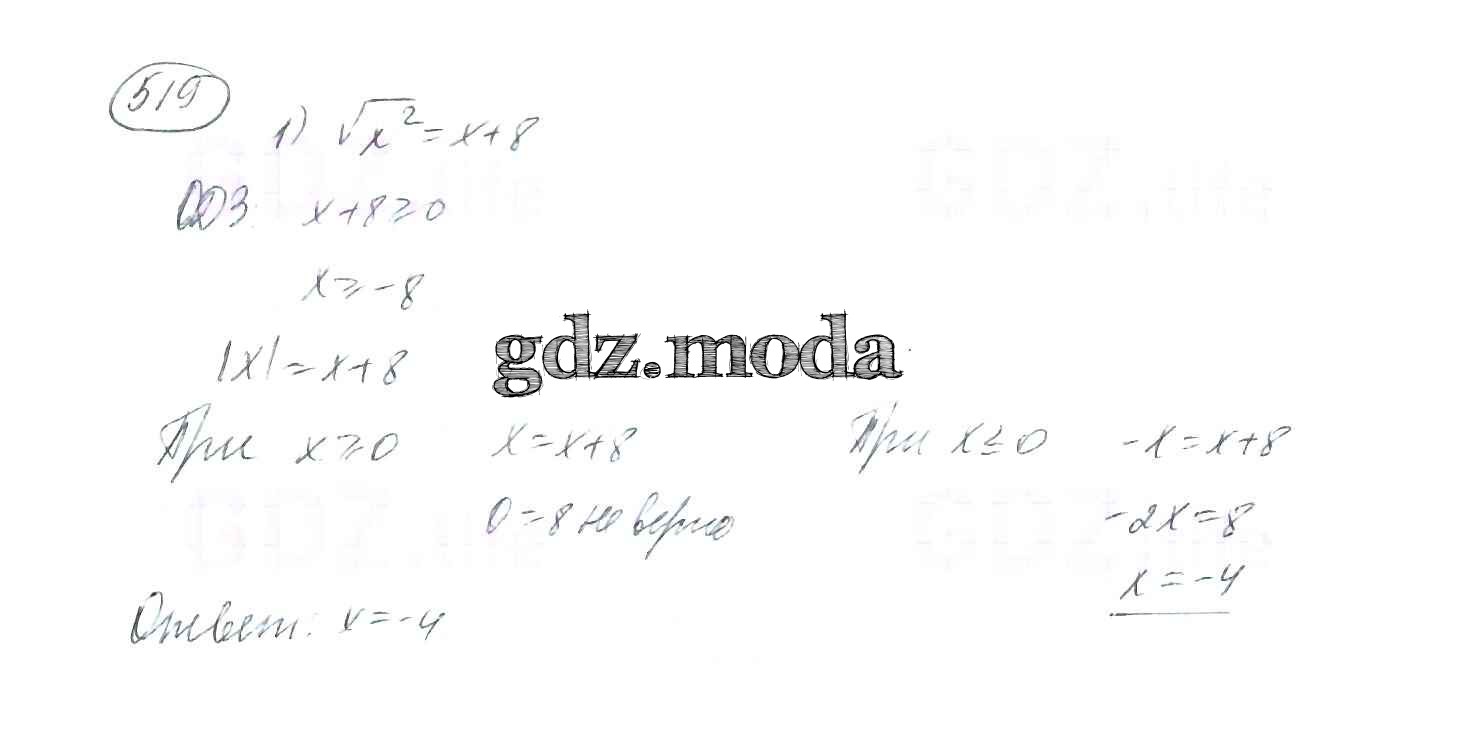 519
1) √x² = x+8
ОДЗ: x+8≥0
x≥-8
gdz.moda
|x| = x+8
При x≥0 x=x+8 При x≤0 -x=x+8
0=8 не верно -2x=8
x=-4
Ответ: x=-4
GDZ.life
GDZ.life
GDZ.life
GDZ.life